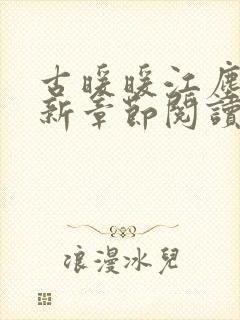 古暖暖江塵
新章節閱讀
浪漫冰兒